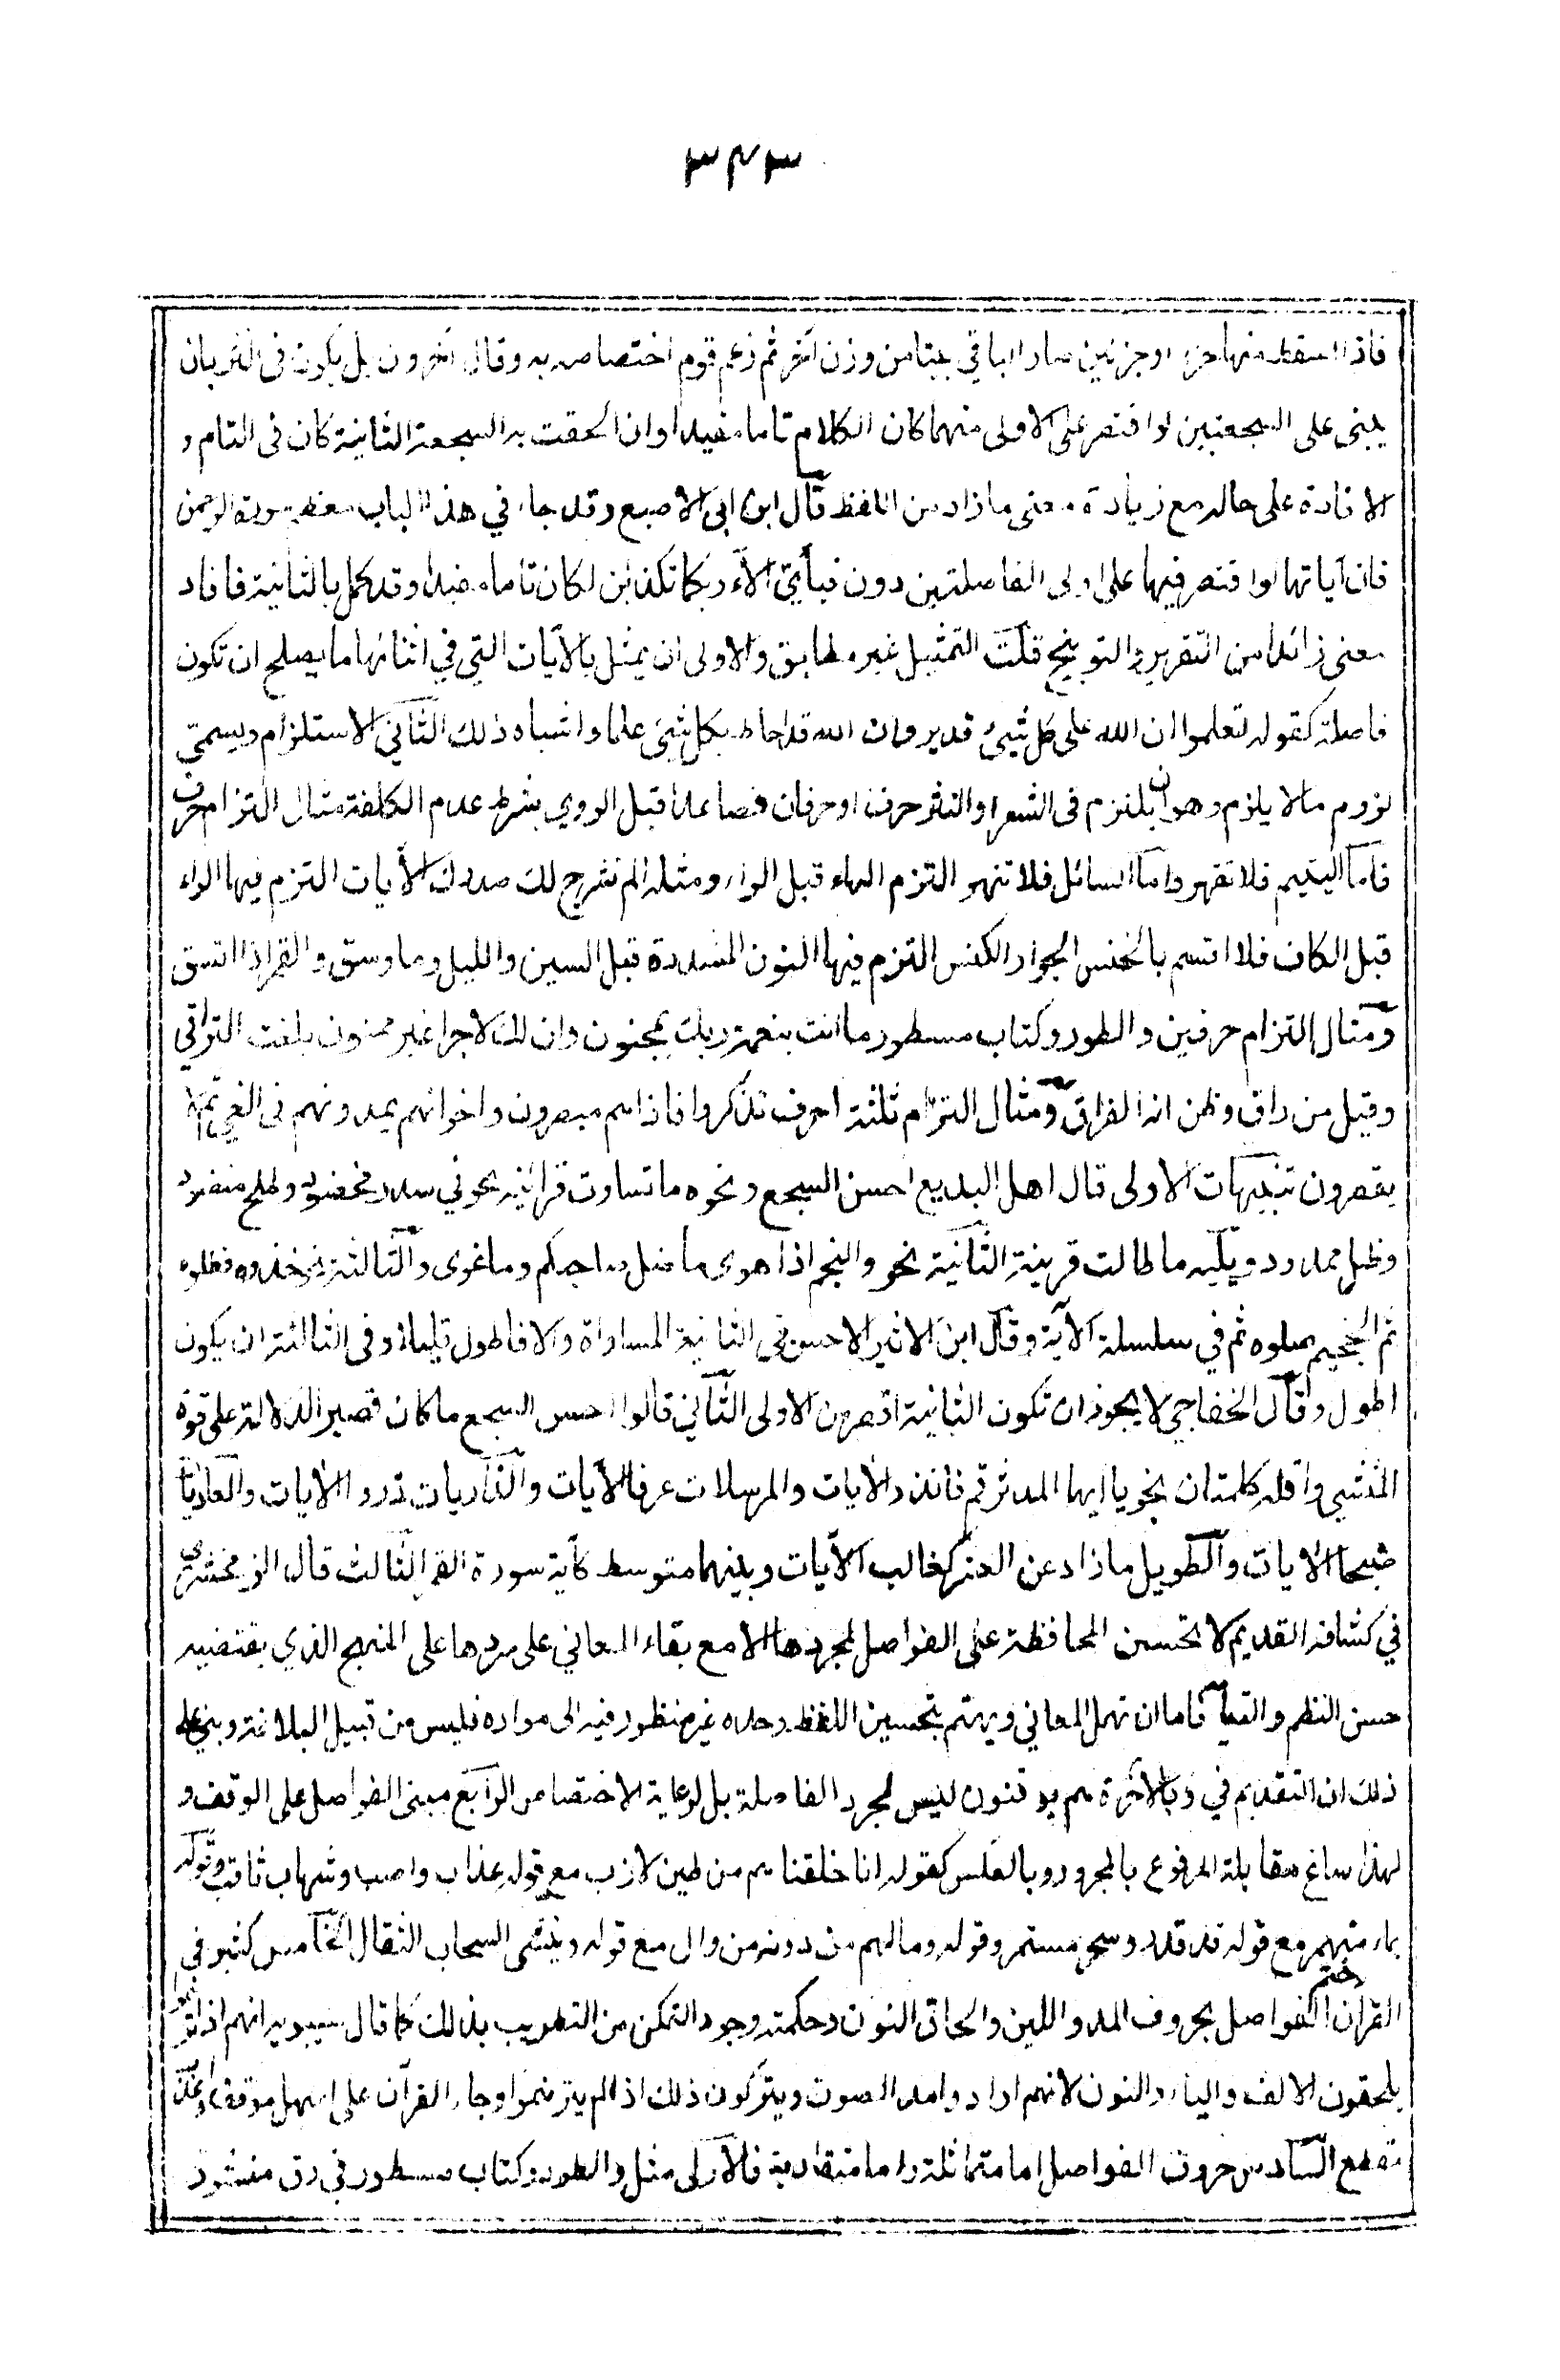 ٣٤٣
فاذا اسقط منها جزء او جزئين صار الباقي بيتا من وزن آخر ثم زعم قوم اختصاصه به وقال آخرون بل يكون فى النثر بان
يبنى على السجعتين لو اقتصر على الاولى منهما كان الكلام تاما مفيدا وان الحقت به السجعة الثانية كان فى التام و
الافادة على حاله مع زيادة معنى ما زاد من اللفظ قال ابن ابى الاصبع وقد جاء في هذا الباب معظم سورة الرحمن
فان آياتها لو اقتصر فيها على اولى الفاصلتين دون فبأي آلاء ربكما تكذبن لكان تاما مفيدا وقد كمل بالثانية فافاد
معنى زائدا من التقرير والتوبيخ قلت التمثيل غير مطابق والاولى ان يمثل بالآيات التي في اثنائها ما يصلح ان تكون
فاصلة كقوله لتعلموا ان الله على كل شيئ قدير وان الله قد احاط بكل شيئ علما واشباه ذلك الثاني الاستلزام ويسمى
لزوم ما لا يلزم وهو ان يلتزم فى الشعر او النثر حرف او حرفان فصاعدا قبل الروي بشرط عدم الكلفة مثال التزام حرف
فاما اليتيم فلا تقهر واما السائل فلا تنهر التزم الهاء قبل الراء ومثله الم نشرح لك صدرك الآيات التزم فيها الراء
قبل الكاف فلا اقسم بالخنس الجوار الكنس التزم فيها النون المشددة قبل السين والليل وما وسق والقمر اذا اتسق
ومثال التزام حرفين والطور وكتاب مسطور ما انت بنعمة ربك بمجنون وان لك لاجرا غير ممنون بلغت التراقي
وقيل من راق وظن انه الفراق ومثال التزام ثلثة احرف تذكروا فاذا هم مبصرون واخوانهم يمدونهم فى الغي ثم لا
يقصرون تنبيهات الاولى قال اهل البديع احسن السجع ونحوه ما تساوت قرائنه نحو في سدر مخضود وطلح منضود
وظل ممدود ويليه ما طالت قرينة الثانية نحو والنجم اذا هوى ما ضل صاحبكم وما غوى والثالثة نحو خذوه فغلوه
ثم الجحيم صلوه ثم في سلسلة الآية وقال ابن الاثير الاحسن في الثانية المساواة والا فاطول قليلا وفى الثالثة ان يكون
اطول وقال الخفاجي لا يجوز ان تكون الثانية اقصر من الاولى الثاني قالوا احسن السجع ما كان قصير الدلالته على قوة
المنشي واقله كلمتان نحو يا ايها المدثر قم فانذر الآيات والمرسلات عرفا الآيات والذاريات ذروا الآيات والعاديات
ضبحا الآيات والطويل ما زاد عن العشر كغالب الآيات وبينهما متوسط كآية سورة القمر الثالث قال الزمخشري
في كشافه القديم لا تحسن المحافظة على الفواصل لمجردها الا مع بقاء المعاني على سردها على المنهج الذي يقتضيه
حسن النظم والتيام فاما ان تهمل المعاني ويهتم بتحسين اللفظ وحده غير منظور فيه الى موارده فليس من قبيل البلاغة وبنى على
ذلك ان التقديم في وبالآخرة هم يوقنون ليس لمجرد الفاصلة بل لرعاية الاختصاص الرابع مبنى الفواصل على الوقف و
لهذا ساغ مقابلة المرفوع بالمجرور وبالعكس كقوله انا خلقناهم من طين لازب مع قوله عذاب واصب وشهاب ثاقب وقوله
بماء منهمر مع قوله قد قدر وسحر مستمر وقوله وما لهم من دونه من وال مع قوله وينشى السحاب الثقال الخامس كثير في
القرآن ختم الفواصل بحروف المد واللين والحاق النون وحكمته وجود التمكن من التطريب بذلك كما قال سيبويه انهم اذا ترنموا
يلحقون الالف والياء والنون لانهم ارادوا مد الصوت ويتركون ذلك اذا لم يترنموا وجاء القرآن على اسهل موقف واعذب
مقطع السادس حروف الفواصل اما متماثلة واما متقاربة فالاولى مثل والطور وكتاب مسطور في رق منشور